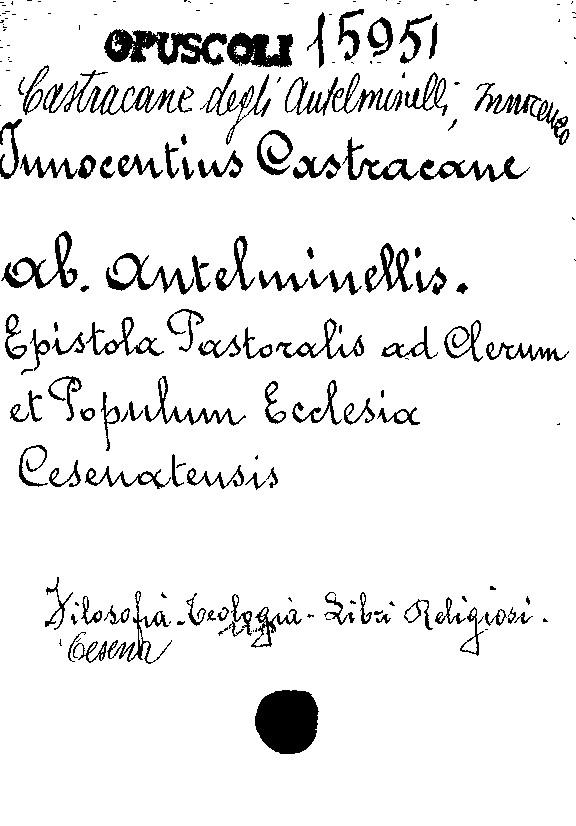 OPUSCOLI 15951
Castracane degli Antelminelli, Innocenzo
Innocentius Castracane
ab. Antelminellis.
Epistola Pastoralis ad Clerum
et Populum Ecclesia
Cesenatensis
Filosofia - Teologia - Libri Religiosi.
Cesena